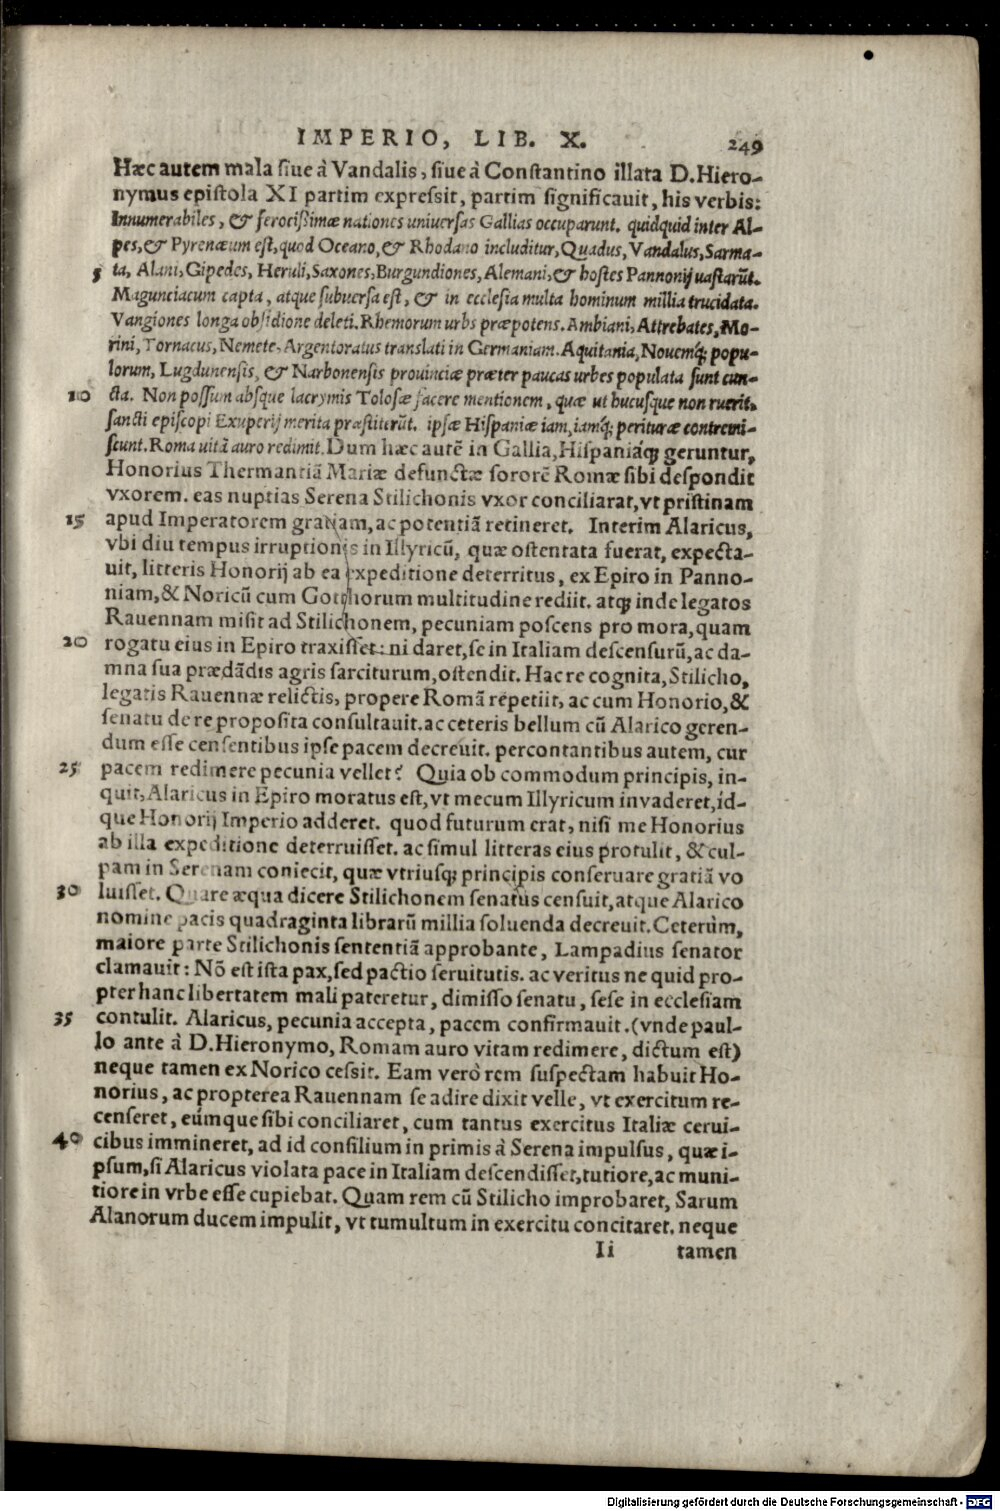 IMPERIO, LIB. X. 249
Hæc autem mala siue à Vandalis, siue à Constantino illata D. Hiero-
nymus epistola XI partim expressit, partim significauit, his verbis:
Innumerabiles, & ferocißimæ nationes uniuersas Gallias occuparunt. quidquid inter Al-
pes, & Pyrenæum est, quod Oceano, & Rhodano includitur, Quadus, Vandalus, Sarma-
5 ta, Alani, Gipedes, Heruli, Saxones, Burgundiones, Alemani, & hostes Pannonij uastarũt.
Magunciacum capta, atque subuersa est, & in ecclesia multa hominum millia trucidata.
Vangiones longa obsidione deleti. Rhemorum urbs præpotens. Ambiani, Attrebates, Mo-
rini, Tornacus, Nemete, Argentoratus translati in Germaniam. Aquitania, Nouemq́; popu-
lorum, Lugdunensis, & Narbonensis prouinciæ præter paucas urbes populata sunt cun-
10 cta. Non possum absque lacrymis Tolosæ facere mentionem, quæ ut hucusque non rueret,
sancti episcopi Exuperij merita præstiterũt. ipsæ Hispaniæ iam, iamq́; perituræ contremi-
scunt. Roma uitã auro redimit. Dum hæc autẽ in Gallia, Hispaniáq; geruntur,
Honorius Thermantiã Mariæ defunctæ sororẽ Romæ sibi despondit
vxorem. eas nuptias Serena Stilichonis vxor conciliarat, vt pristinam
15 apud Imperatorem gratiam, ac potentiã retineret. Interim Alaricus,
vbi diu tempus irruptionis in Illyricũ, quæ ostentata fuerat, expecta-
uit, litteris Honorij ab ea expeditione deterritus, ex Epiro in Panno-
niam, & Noricũ cum Gotthorum multitudine rediit. atq; inde legatos
Rauennam misit ad Stilichonem, pecuniam poscens pro mora, quam
20 rogatu eius in Epiro traxisset: ni daret, se in Italiam descensurũ, ac da-
mna sua prædãdis agris sarciturum, ostendit. Hac re cognita, Stilicho,
legatis Rauennæ relictis, propere Romã repetiit, ac cum Honorio, &
senatu de re proposita consultauit. ac ceteris bellum cũ Alarico geren-
dum esse censentibus ipse pacem decreuit. percontantibus autem, cur
25 pacem redimere pecunia vellet? Quia ob commodum principis, in-
quit, Alaricus in Epiro moratus est, vt mecum Illyricum inuaderet, id-
que Honorij Imperio adderet. quod futurum erat, nisi me Honorius
ab illa expeditione deterruisset. ac simul litteras eius protulit, & cul-
pam in Serenam coniecit, quæ vtriusq; principis conseruare gratiã vo
30 luisset. Quare æqua dicere Stilichonem senatus censuit, atque Alarico
nomine pacis quadraginta librarũ millia soluenda decreuit. Ceterùm,
maiore parte Stilichonis sententiã approbante, Lampadius senator
clamauit: Nõ est ista pax, sed pactio seruitutis. ac veritus ne quid pro-
pter hanc libertatem mali pateretur, dimisso senatu, sese in ecclesiam
35 contulit. Alaricus, pecunia accepta, pacem confirmauit. (vnde paul-
lo ante à D. Hieronymo, Romam auro vitam redimere, dictum est)
neque tamen ex Norico cessit. Eam verò rem suspectam habuit Ho-
norius, ac propterea Rauennam se adire dixit velle, vt exercitum re-
censeret, eúmque sibi conciliaret, cum tantus exercitus Italiæ cerui-
40 cibus immineret, ad id consilium in primis à Serena impulsus, quæ i-
psum, si Alaricus violata pace in Italiam descendisset, tutiore, ac muni-
tiore in vrbe esse cupiebat. Quam rem cũ Stilicho improbaret, Sarum
Alanorum ducem impulit, vt tumultum in exercitu concitaret. neque
Ii tamen
Digitalisierung gefördert durch die Deutsche Forschungsgemeinschaft - DFG